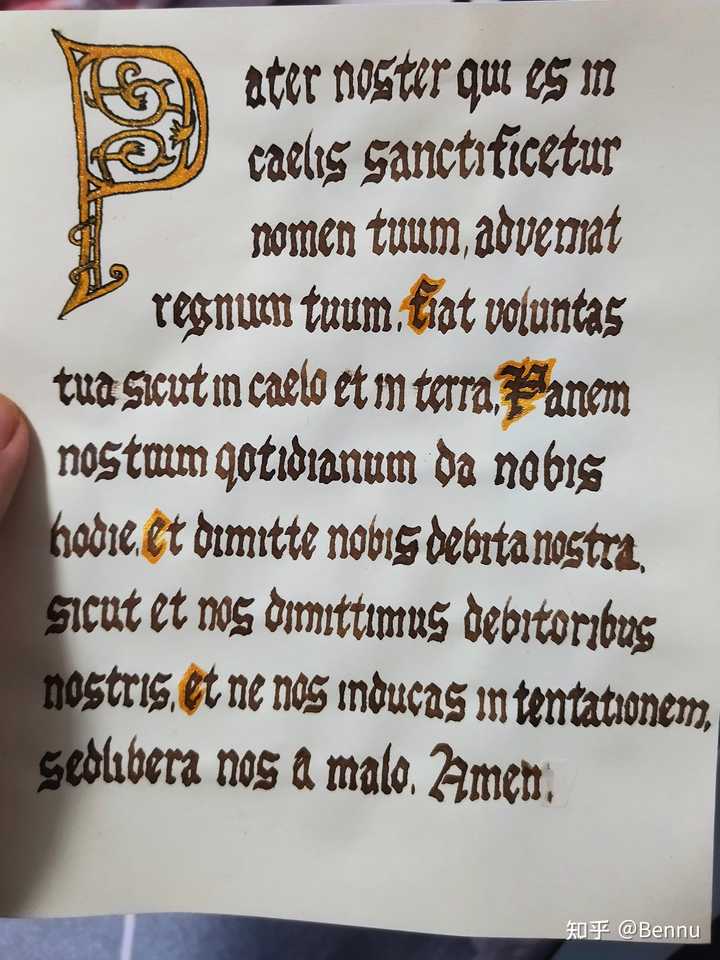 Pater noster qui es in
caelis sanctificetur
nomen tuum, adveniat
regnum tuum. Fiat voluntas
tua sicut in caelo et in terra. Panem
nostrum qotidianum da nobis
hodie, et dimitte nobis debita nostra.
sicut et nos dimittimus debitoribus
nostris, et ne nos inducas in tentationem,
sed libera nos a malo. Amen.
知乎 @Bennu